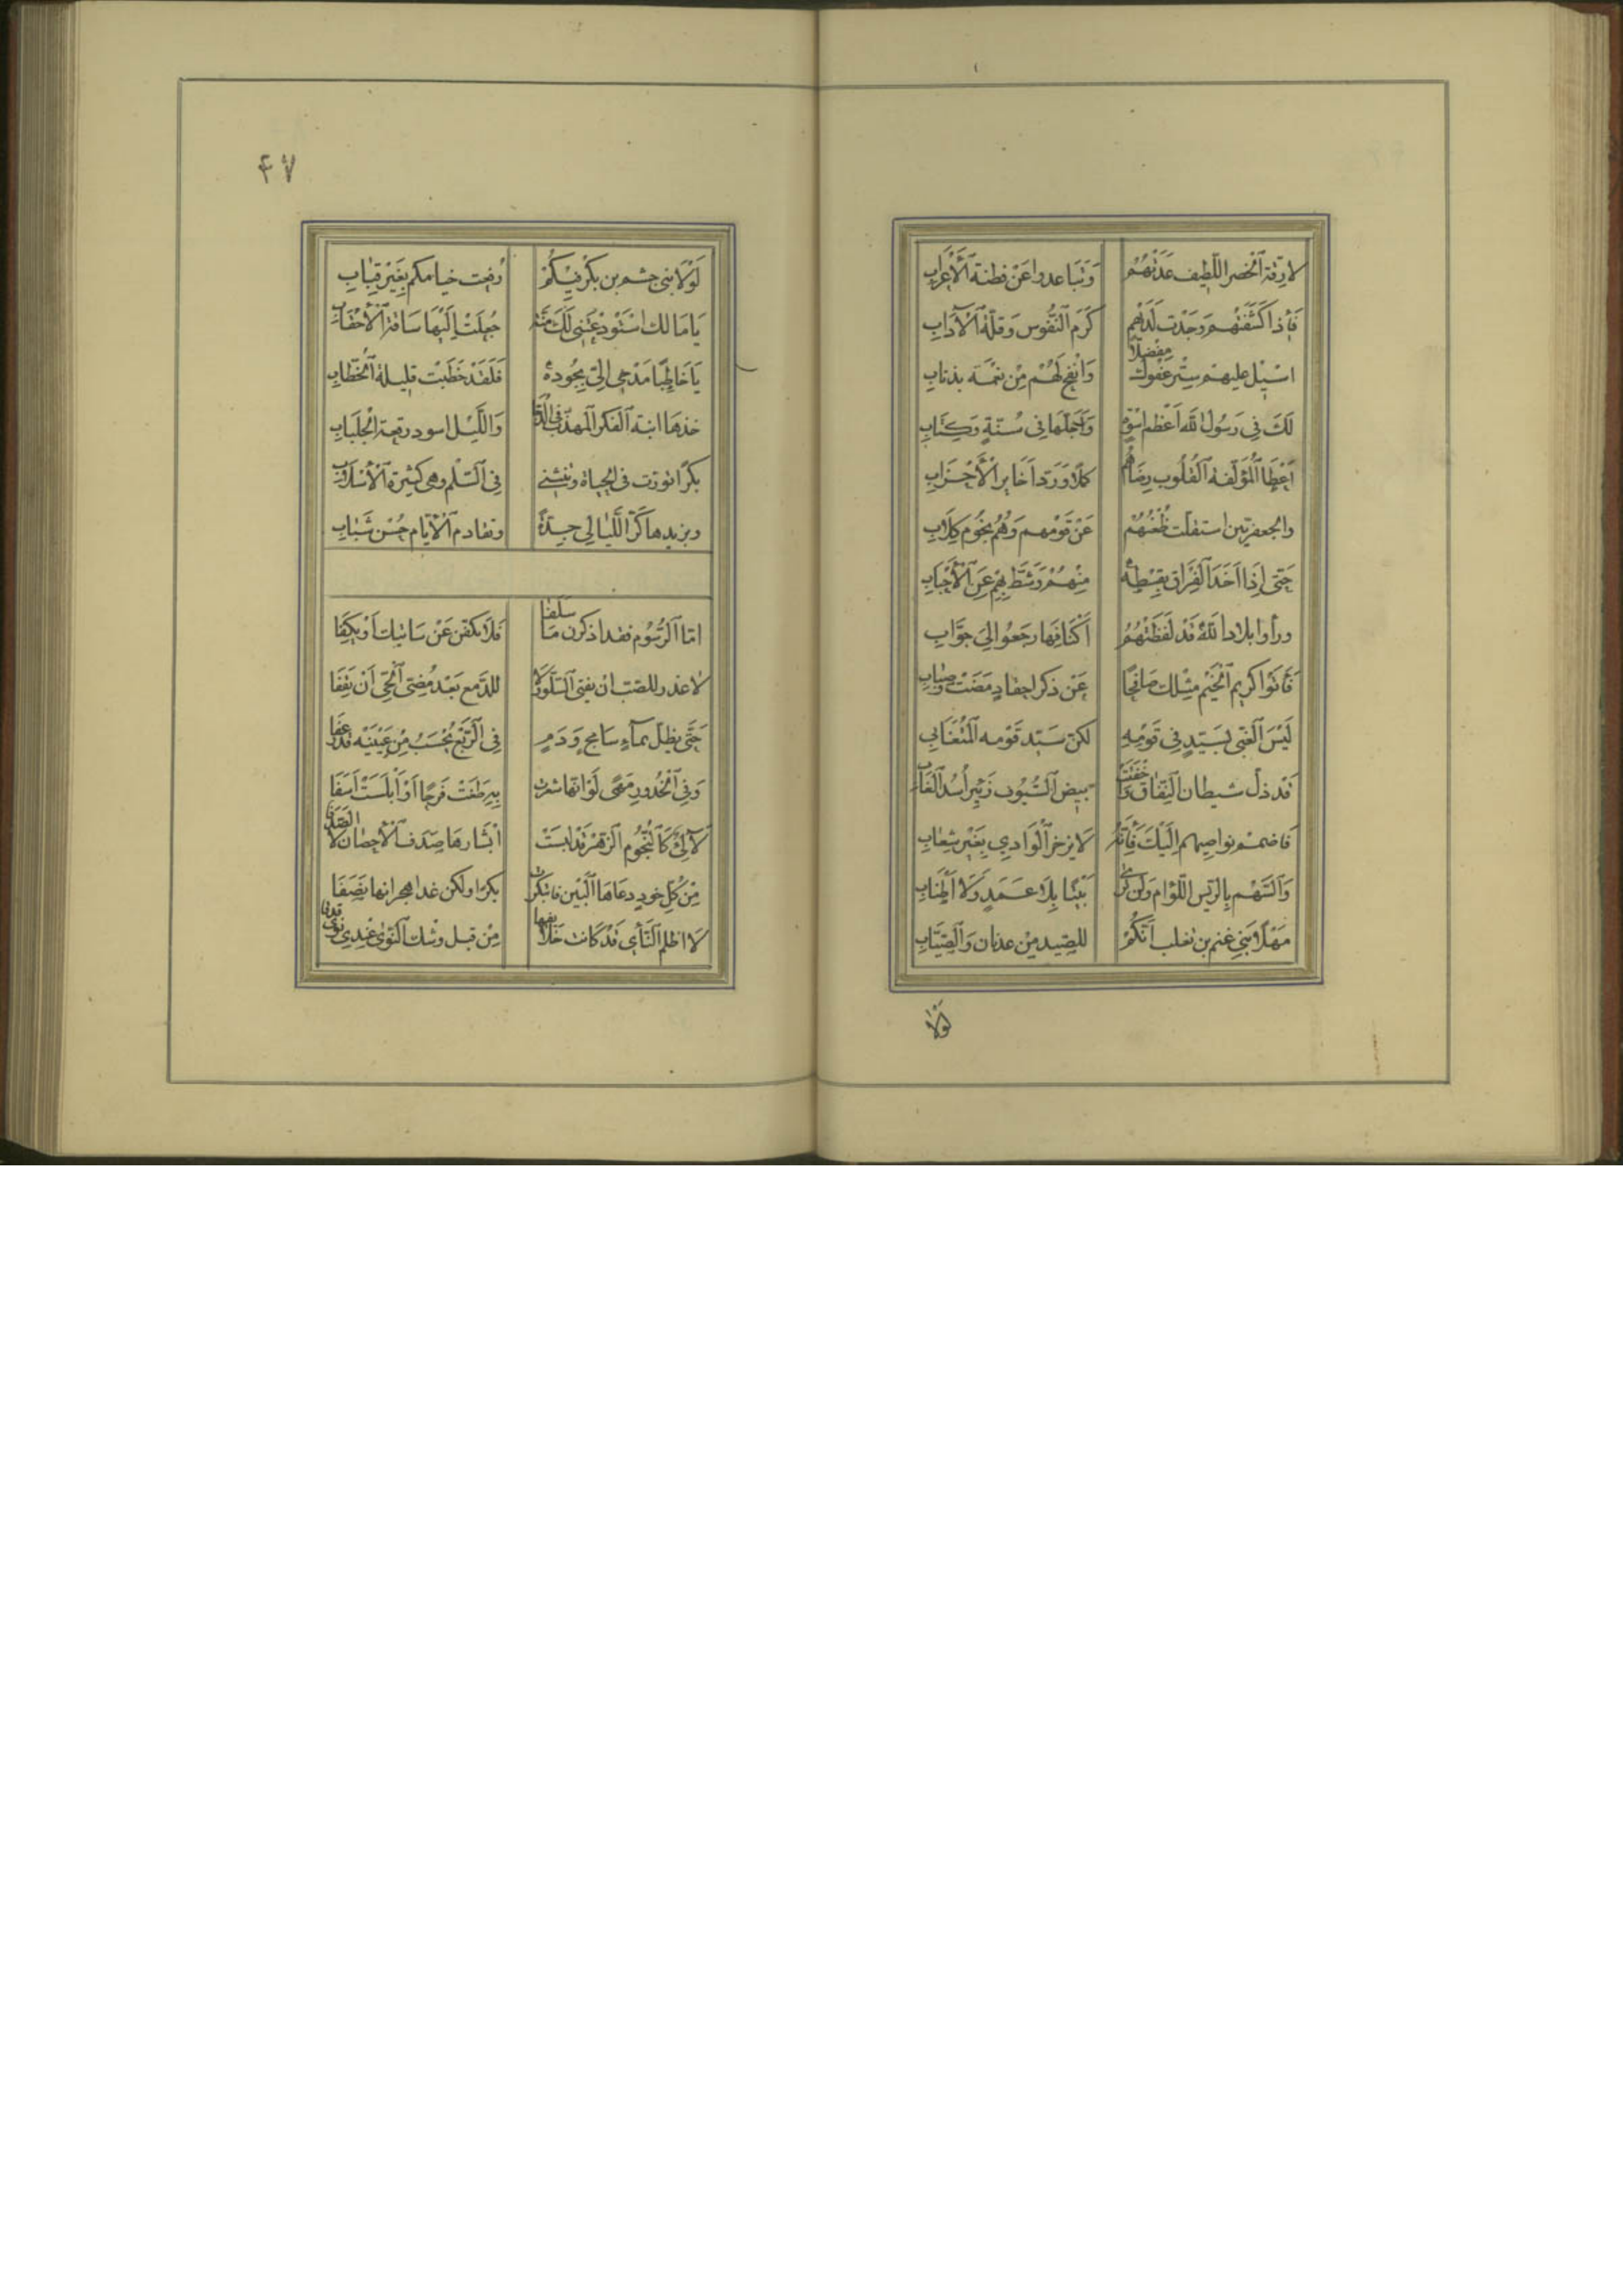 لا رِقّة الخضر اللّطيف غذتهُمُ وَتَباعدوا عَنْ فطنة الأَعْرابِ
فَأِذا كَشَفْتهُم وَجَدْت لَدَيْهِم كَرَمَ النّفُوس وَقلّة الآدابِ
اسْبِل عليهمْ سِتْر عَفوك مفضلاً وَانْفح لَهُمْ مِن نعْمَة بذنابِ
لَكَ في رَسُول اللّه أَعْظم اسْوةٍ وَأَجَلّها في سُنّةٍ وَكِتَابِ
أَعْطَا المُؤلّفة القُلُوب رِضَاهُم كملاً وَرَدّ أَخَايِر الأَحْزابِ
والجعفريّين استقلّت ظُعْنُهُمْ عَنْ قَوْمِهم وَهُمُ نجُوم كِلابِ
حَتّى إِذا أَخَذ الفِراق بقِسْطِهِ مِنْهُمْ وَشَطّ بِهِمْ عَنِ الأَحْبابِ
ورأوا بلاد اللّه قد لفَظَتْهُمُ أَكْنافِها رجَعُوا إلى جوّابِ
فَأَتَوْا كَرِيم الخَيْم مثْلك صَافِحاً عَنْ ذكر احقاد مَضَتْ وضِبابِ
لَيْسَ الغبيّ بسَيّدٍ في قَوْمِهِ لكنّ سَيّد قَوْمه المُتَغَابي
قَدْ ذلّ شيطان النّفاق وَأَخفَتَتْ بيض السُّيُوف زَئِير أُسْد الغَابِ
فَاضمم نواصِيهم إِلَيْك فَأِنّه لا يزخر الوَادِي بِغَيْر شِعابِ
وَالسّهْم بِالرّيش اللّؤام وَلَن تَرى بَيْتاً بِلا عَمَدٍ وَلا أَطْنابِ
مَهْلاً بَنِي غنم بن تغلب إنّكُمْ للصّيد مِنْ عدنان وَالصّيّابِ
لَوْلا
٤٧
لَوْلا بني جشم بن بكْر فيْكُمْ رُفِعت خيامكم بِغَيْر قِبابِ
يَا مَالك اسْتَوْدعْتَني لَكَ مِنّة جُعِلَتْ إِلَيْها سَاقة الأحْقابِ
يَا خَاطِباً مَدْحي إليّ بجُودهِ فَلَقَدْ خَطَبْت قليلة الخُطّابِ
خذها ابنة الفكر المهذّب في الدّجا وَاللّيْل اسود رقعة الجِلْبابِ
بكراً تورّث في الحياة وتنثني في السّلْم وهي كثيرة الأسْلابِ
ويزيدها كرّ اللّيالي جِدّةً وتقادم الأيّام حُسْن شَبابِ
امّا الرّسُوم فقد اذكرن مَا سَلَفا فَلا تكفّن عَنْ شأنيك أوْ يَكِفا
لا عذر للصّبّ ان يقني السّلوّ ولا للدّمع بَعْد مُضيّ الحيّ أَنْ يقِفا
حَتّى يظلّ بماءٍ سَافحٍ وَدَمٍ فِي الرّبْع يُحْسَبُ مِنْ عَيْنَيْه قد رعفا
وَفي الخُدُور مَهًى لَوْ انّها شعرت بِهِ طغَتْ فَرحاً أوْ أبْلَسَتْ أسَفا
لآلِئٌ كَالنّجُوم الزّهْر قَدْ لبسَتْ أبْشارها صدَف الأحصان لا الصّدفا
مِنْ كُلّ خودٍ دعَاهَا البَيْن فابتكرت بكراً ولكن غدا هجرانها نصَفا
لا اظلم النّأي قدْ كانت خَلائقها مِنْ قبل وشك النّوى عندي نوًى قذفا